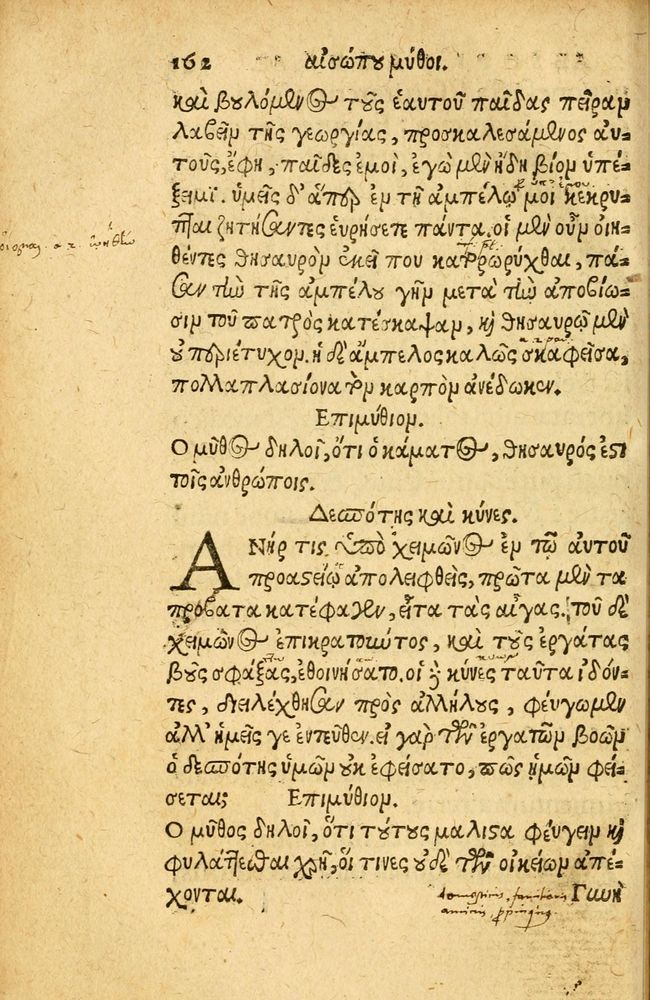 162 αἰσώπου μῦθοι.
καὶ βουλόμενος τοὺς ἑαυτοῦ παῖδας πεῖραν
λαβεῖν τῆς γεωργίας, προσκαλεσάμενος αὐ-
τοὺς, ἔφη, παῖδες ἐμοὶ, ἐγὼ μὲν ἤδη βίον ὑπέ-
ξειμι. ὑμεῖς δ' ἅπερ ἐν τῇ ἀμπέλῳ μοι κέκρυ-
πται ζητήσαντες εὑρήσετε πάντα. οἱ μὲν οὖν οἰη-
θέντες θησαυρὸν ἐκεῖ που κατορωρύχθαι, πᾶ-
σαν τὴν τῆς ἀμπέλου γῆν μετὰ τὴν ἀποβίω-
σιν τοῦ πατρὸς κατέσκαψαν, καὶ θησαυρῷ μὲν
οὐ περιέτυχον. ἡ δὲ ἄμπελος καλῶς σκαφεῖσα,
πολλαπλασίονα τὸν καρπὸν ἀνέδωκεν.
Ἐπιμύθιον.
Ὁ μῦθος δηλοῖ, ὅτι ὁ κάματος, θησαυρός ἐστι
τοῖς ἀνθρώποις.
Δεσπότης καὶ κύνες.
ΑΝήρ τις ὑπὸ χειμῶνος ἐν τῷ αὐτοῦ
προαστείῳ ἀπολειφθεὶς, πρῶτα μὲν τὰ
πρόβατα κατέφαγεν, εἶτα τὰς αἶγας. τοῦ δὲ
χειμῶνος ἐπικρατοῦντος, καὶ τοὺς ἐργάτας
βοῦς σφάξας, ἐθοινήσατο. οἱ δὲ κύνες ταῦτα ἰδόν-
τες, διελέχθησαν πρὸς ἀλλήλους, φεύγωμεν
ἀλλ' ἡμεῖς γε ἐντεῦθεν. εἰ γὰρ τῶν ἐργατῶν βοῶν
ὁ δεσπότης ὑμῶν οὐκ ἐφείσατο, πῶς ἡμῶν φεί-
σεται; Ἐπιμύθιον.
Ὁ μῦθος δηλοῖ, ὅτι τούτους μάλιστα φεύγειν καὶ
φυλάττεσθαι χρὴ, οἵ τινες οὐδὲ τῶν οἰκείων ἀπέ-
χονται. Γυνὴ